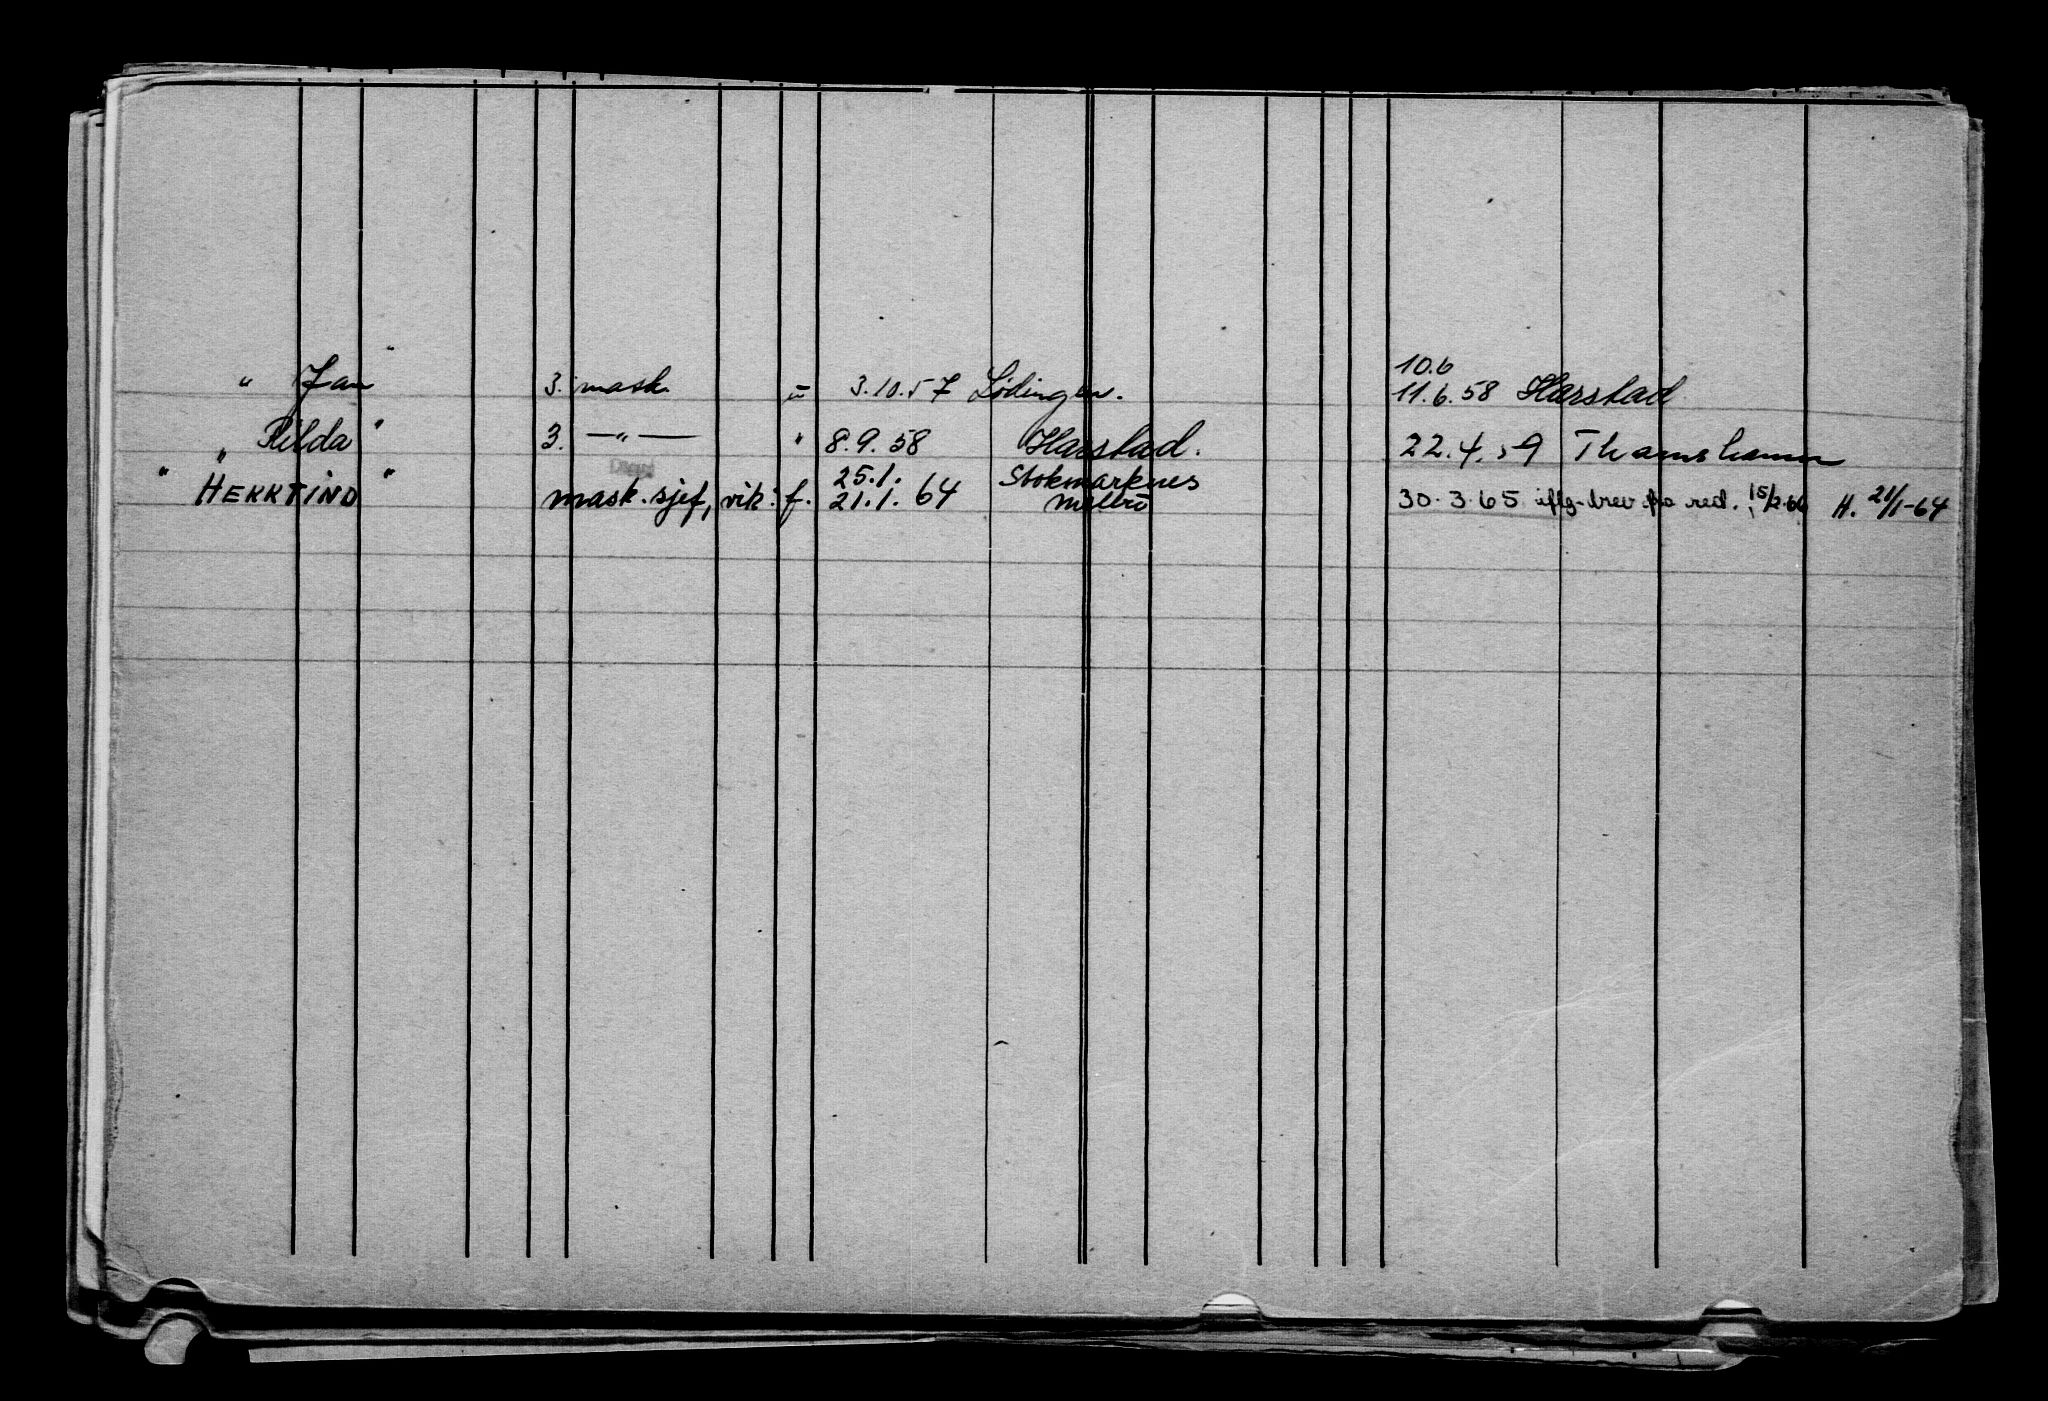 10.6
" Jan " 3. mask. " 3.10.57 Lödingen. 11.6.58 Harstad
" Rilda " 3. —"— " 8.9.58 Harstad. 22.4.59 Thamshamn
25.1. Stokmarknes
" HEKKTIND " mask.sjef, vik. f. 21.1.64 Melbö 30.3.65 iflg. brev fra red. 15/2-66 H. 21/1-64